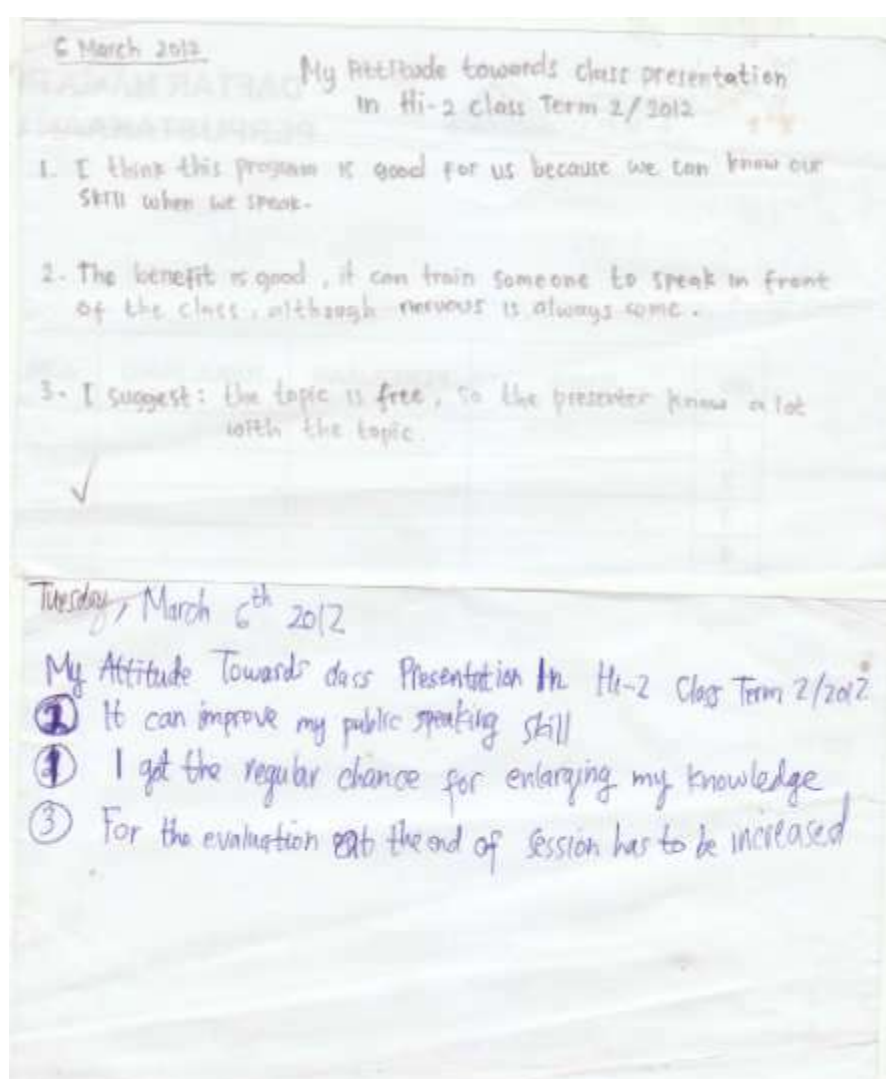 6 March 2012
My Attitude towards class presentation
In Hi-2 class Term 2/2012
1. I think this program is good for us because we can know our
skill when we speak.
2. The benefit is good, it can train someone to speak in front
of the class, although nervous is always come.
3. I suggest: the topic is free, so the presenter know a lot
with the topic.
Tuesday, March 6th 2012
My Attitude Towards class Presentation In Hi-2 Class Term 2/2012
1 It can improve my public speaking skill
2 I get the regular chance for enlarging my knowledge
3 For the evaluation at the end of session has to be increased